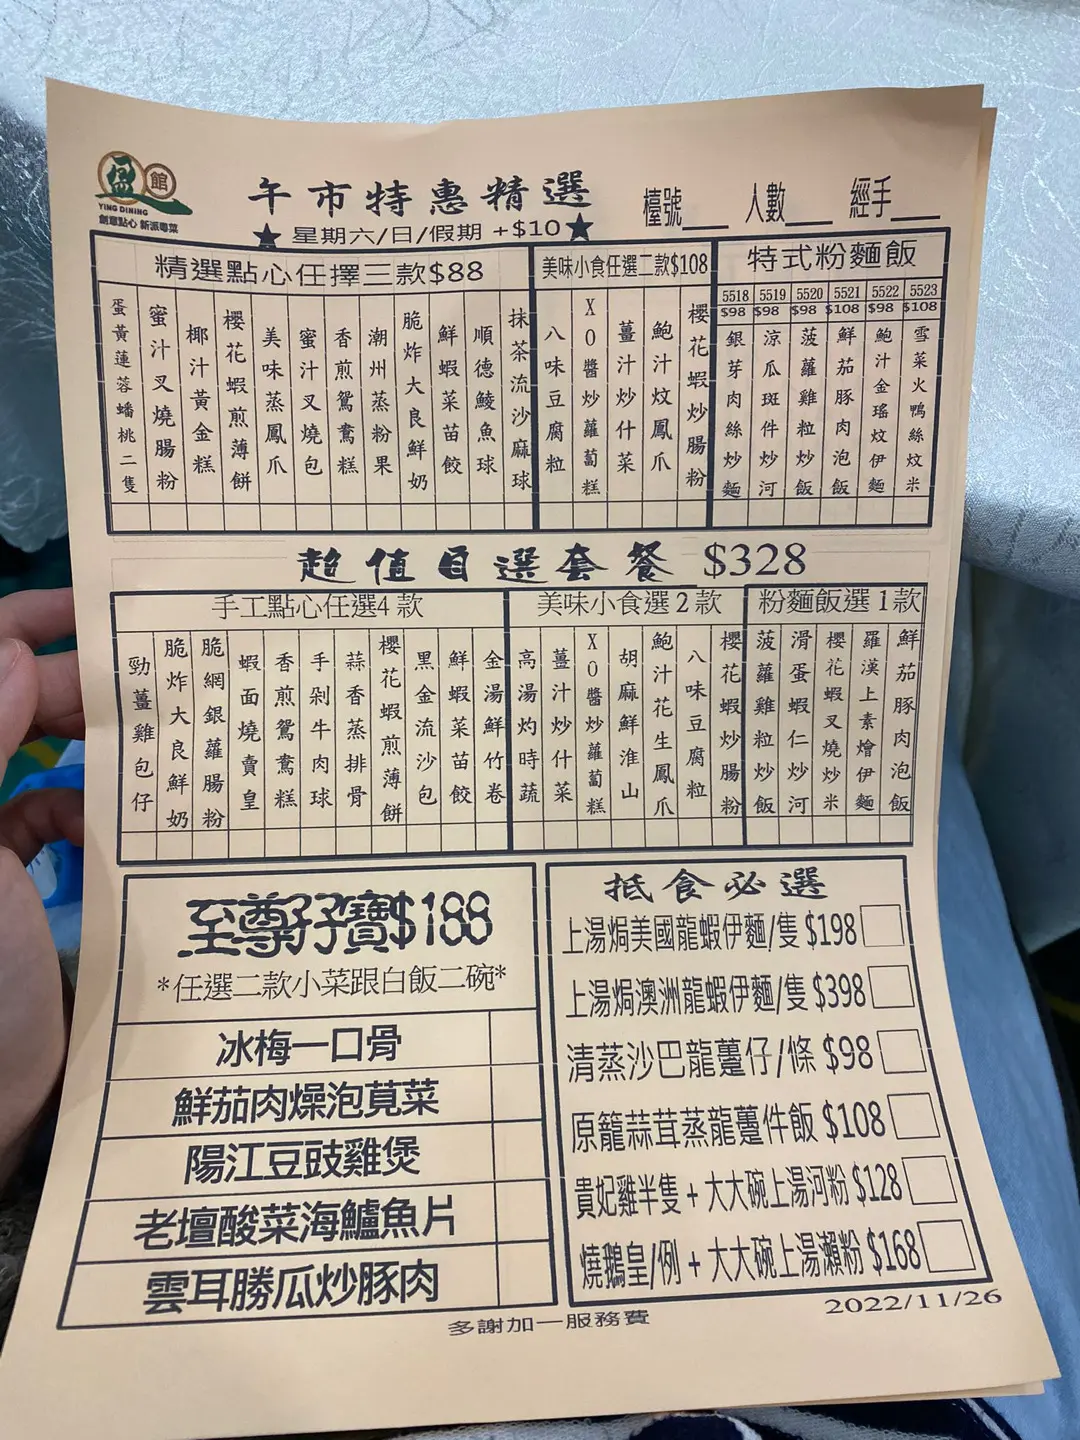 盈館
YING DINING
創意點心 新派粵菜
午市特惠精選
檯號___ 人數___ 經手___
★星期六/日/假期 +$10★
精選點心任擇三款$88
蛋黃蓮蓉蟠桃二隻
蜜汁叉燒腸粉
椰汁黃金糕
櫻花蝦煎薄餅
美味蒸鳳爪
蜜汁叉燒包
香煎鴛鴦糕
潮州蒸粉果
脆炸大良鮮奶
鮮蝦菜苗餃
順德鯪魚球
抹茶流沙麻球
美味小食任選二款$108
八味豆腐粒
XO醬炒蘿蔔糕
薑汁炒什菜
鮑汁炆鳳爪
櫻花蝦炒腸粉
特式粉麵飯
5518 5519 5520 5521 5522 5523
$98 $98 $98 $108 $98 $108
銀芽肉絲炒麵
涼瓜斑件炒河
菠蘿雞粒炒飯
鮮茄豚肉泡飯
鮑汁金瑤炆伊麵
雪菜火鴨絲炆米
超值自選套餐 $328
手工點心任選4款
勁薑雞包仔
脆炸大良鮮奶
脆網銀蘿腸粉
蝦面燒賣皇
香煎鴛鴦糕
手剁牛肉球
蒜香蒸排骨
櫻花蝦煎薄餅
黑金流沙包
鮮蝦菜苗餃
金湯鮮竹卷
美味小食選2款
高湯灼時蔬
薑汁炒什菜
XO醬炒蘿蔔糕
胡麻鮮淮山
鮑汁花生鳳爪
八味豆腐粒
櫻花蝦炒腸粉
粉麵飯選1款
菠蘿雞粒炒飯
滑蛋蝦仁炒河
櫻花蝦叉燒炒米
羅漢上素燴伊麵
鮮茄豚肉泡飯
至尊孖寶$188
*任選二款小菜跟白飯二碗*
冰梅一口骨
鮮茄肉燥泡莧菜
陽江豆豉雞煲
老壇酸菜海鱸魚片
雲耳勝瓜炒豚肉
抵食必選
上湯焗美國龍蝦伊麵/隻 $198
上湯焗澳洲龍蝦伊麵/隻 $398
清蒸沙巴龍躉仔/條 $98
原籠蒜茸蒸龍躉件飯 $108
貴妃雞半隻 + 大大碗上湯河粉 $128
燒鵝皇/例 + 大大碗上湯瀨粉 $168
多謝加一服務費
2022/11/26